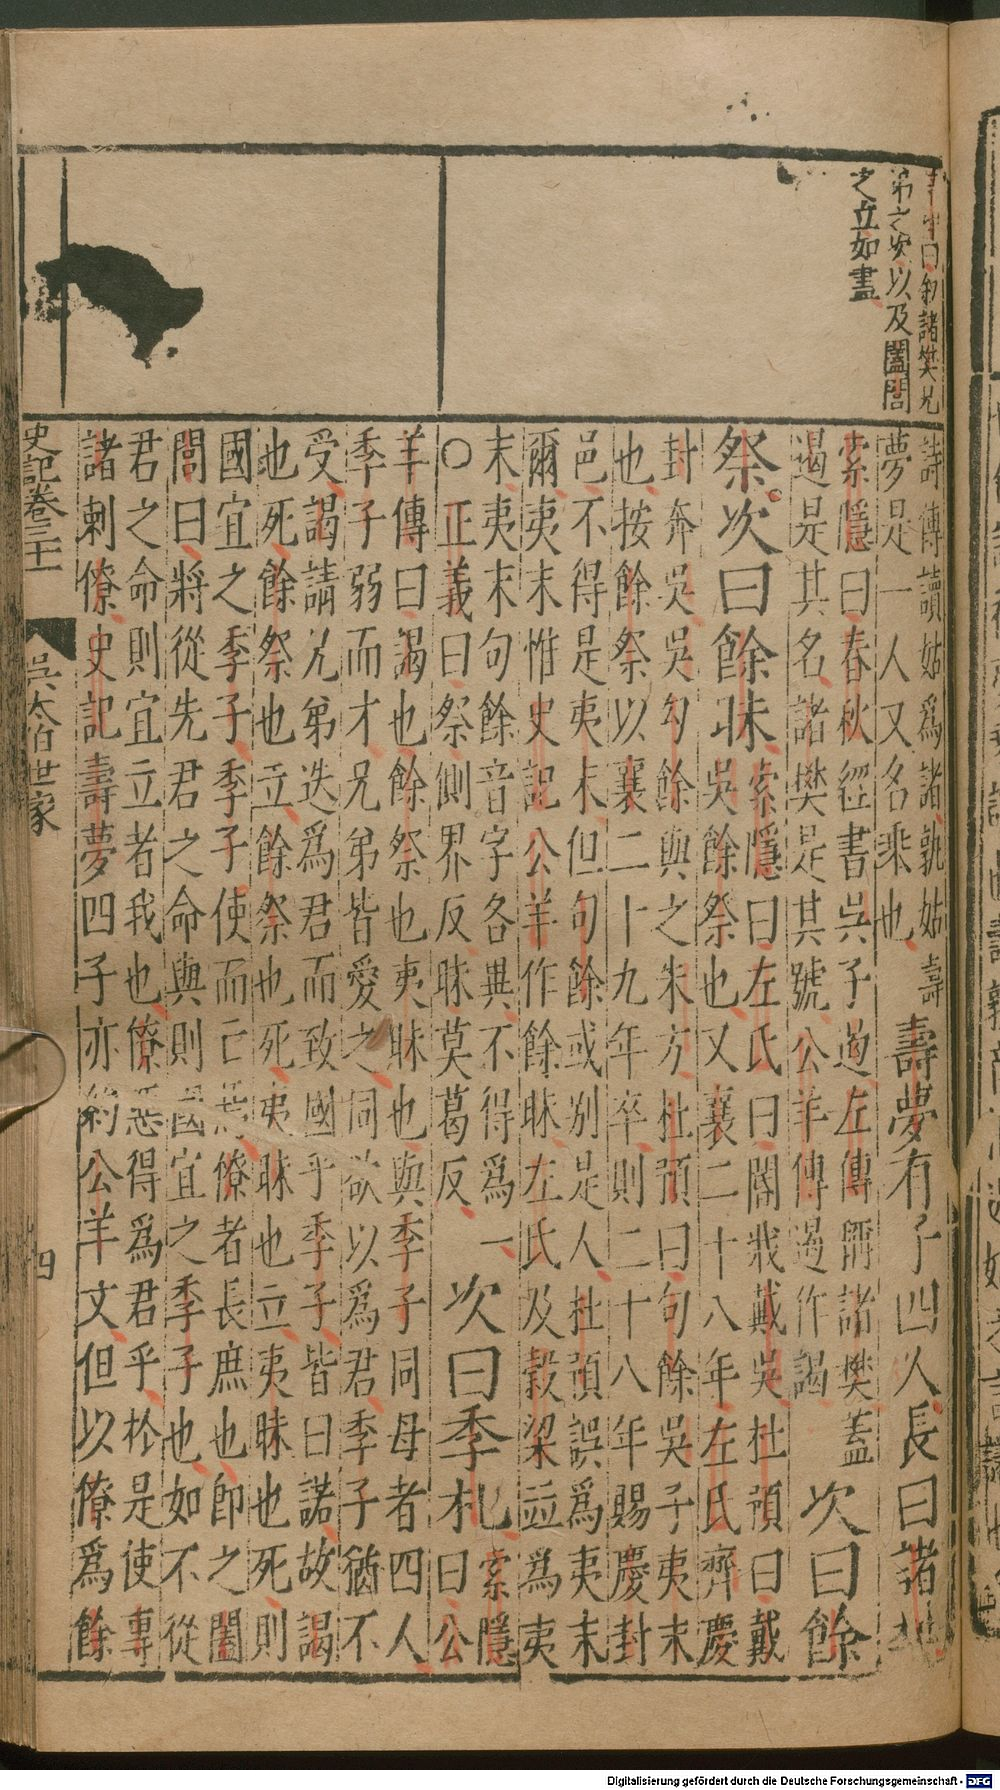 曰叙諸樊兄
弟之次以及闔閭
之立如畫
詩傳讀姑爲諸孰姑壽
夢是一人又名乘也
壽夢有子四人長曰諸樊
索隱曰春秋經書吳子遏左傳稱諸樊蓋
遏是其名諸樊是其號公羊傳遏作謁
次曰餘
祭次曰餘眛
索隱曰左氏曰閽戕戴吳杜預曰戴
吳餘祭也又襄二十八年左氏齊慶
封奔吳吳勾餘與之朱方杜預曰句餘吳子夷末
也按餘祭以襄二十九年卒則二十八年賜慶封
邑不得是夷末但句餘或別是人杜預誤爲夷末
爾夷末惟史記公羊作餘眛左氏及穀梁並爲夷
末夷末句餘音字各異不得爲一
〇正義曰祭側界反眛莫葛反
次曰季札
索隱
曰公
羊傳曰謁也餘祭也夷眛也與季子同母者四人
季子弱而才兄弟皆愛之同欲以爲君季子猶不
受謁請兄弟迭爲君而致國乎季子皆曰諾故謁
也死餘祭也立餘祭也死夷眛也立夷眛也死則
國宜之季子季子使而亡焉僚者長庶也即之闔
閭曰將從先君之命與則國宜之季子也如不從
君之命則宜立者我也僚惡得爲君乎於是使專
諸刺僚史記壽夢四子亦約公羊文但以僚爲餘
史記卷三十一
吳太伯世家
四
Digitalisierung gefördert durch die Deutsche Forschungsgemeinschaft - DFG